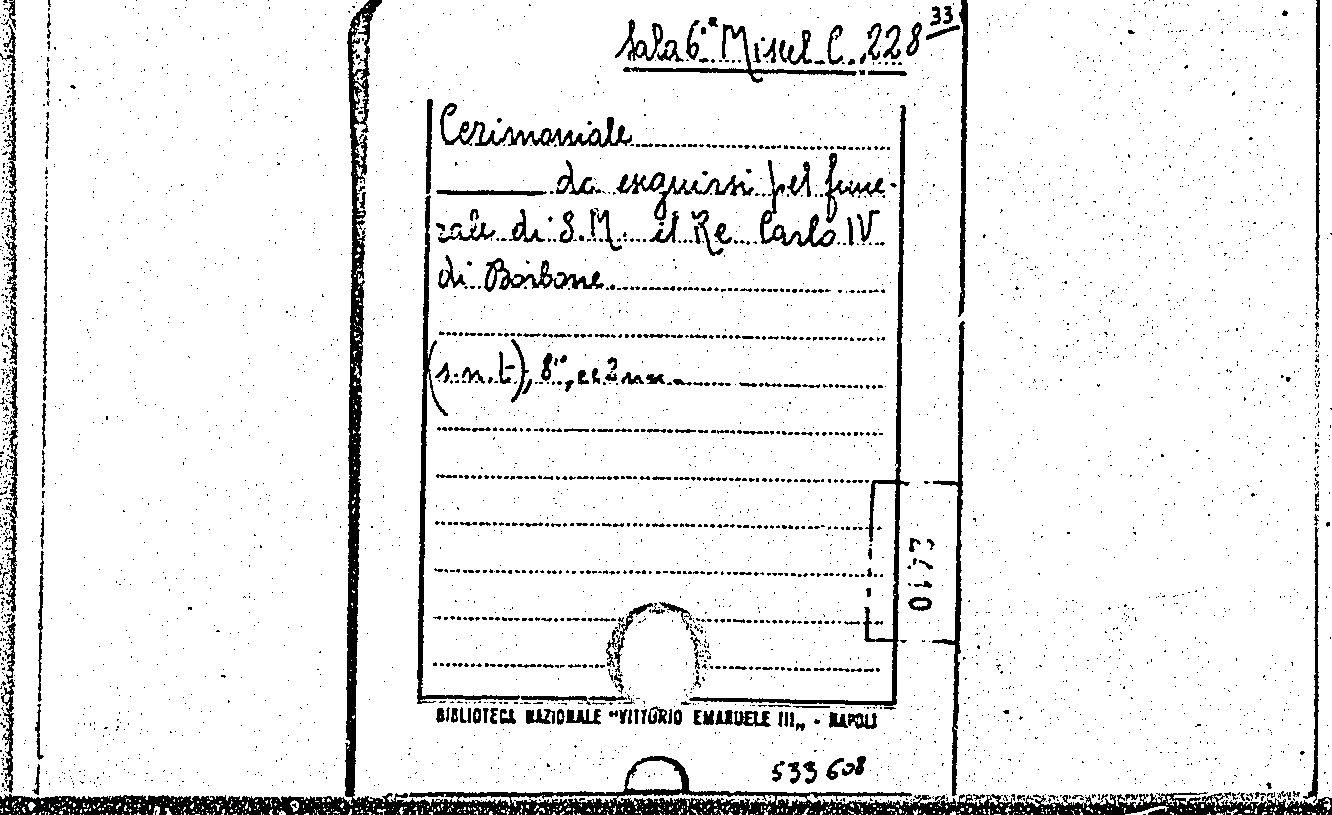 Sala 6ª Miscel C. 228 33
Cerimoniale
da eseguirsi pel fune-
rale di S.M. il Re Carlo IV
di Borbone.
(s.n.t), 8°, cc 2 nn.
BIBLIOTECA NAZIONALE "VITTORIO EMANUELE III„ - NAPOLI
533 608